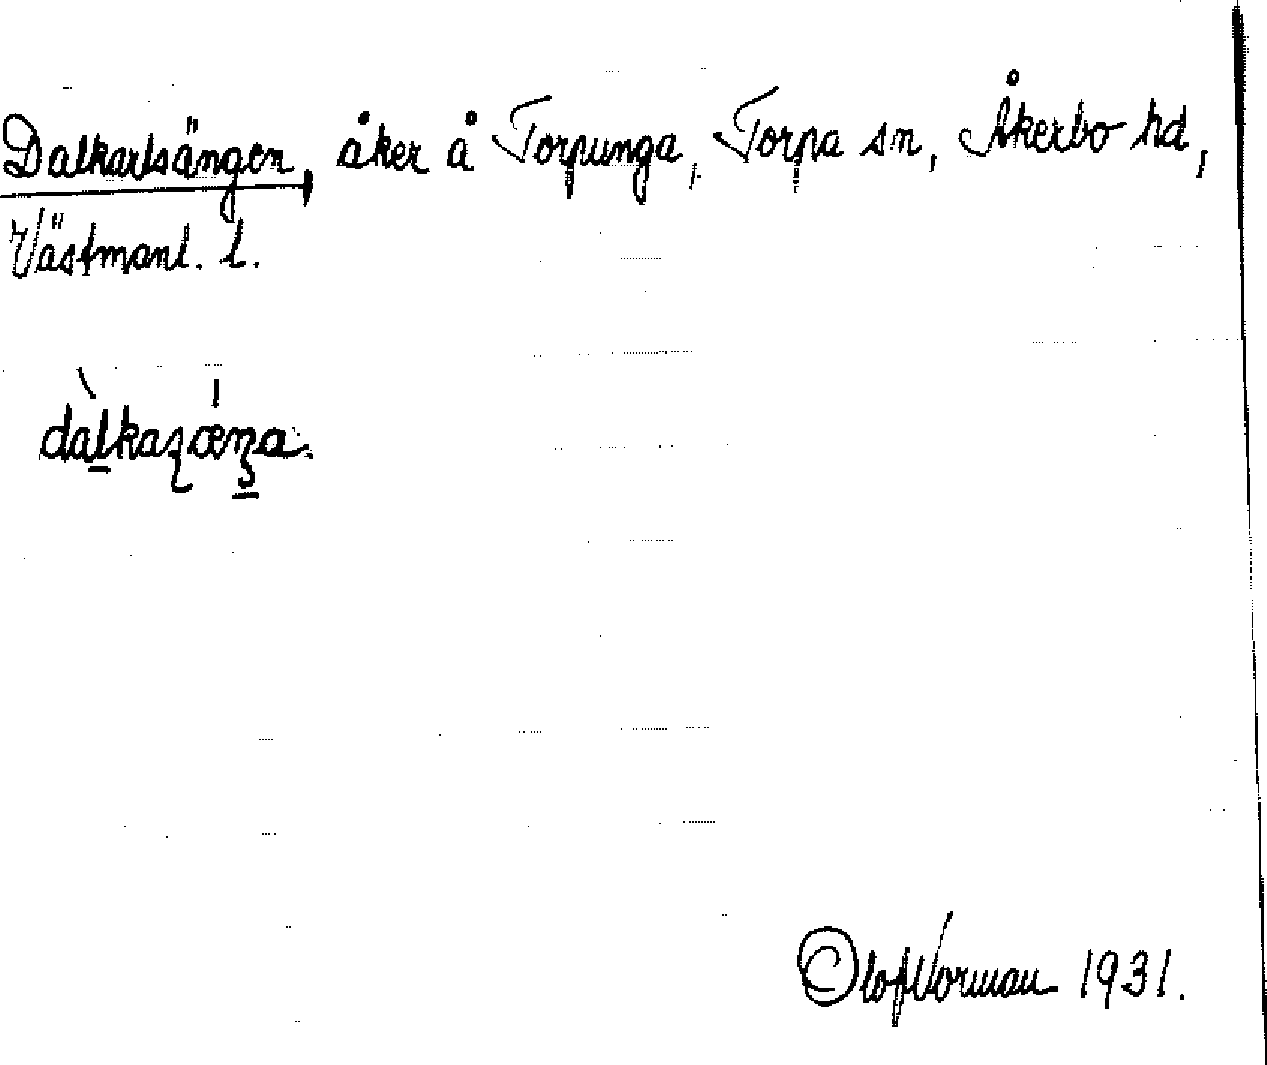 Dalkarlsängen, åker å Torpunga, Torpa sn, Åkerbo hd,
Västmanl. l.
Olof Norman 1931.